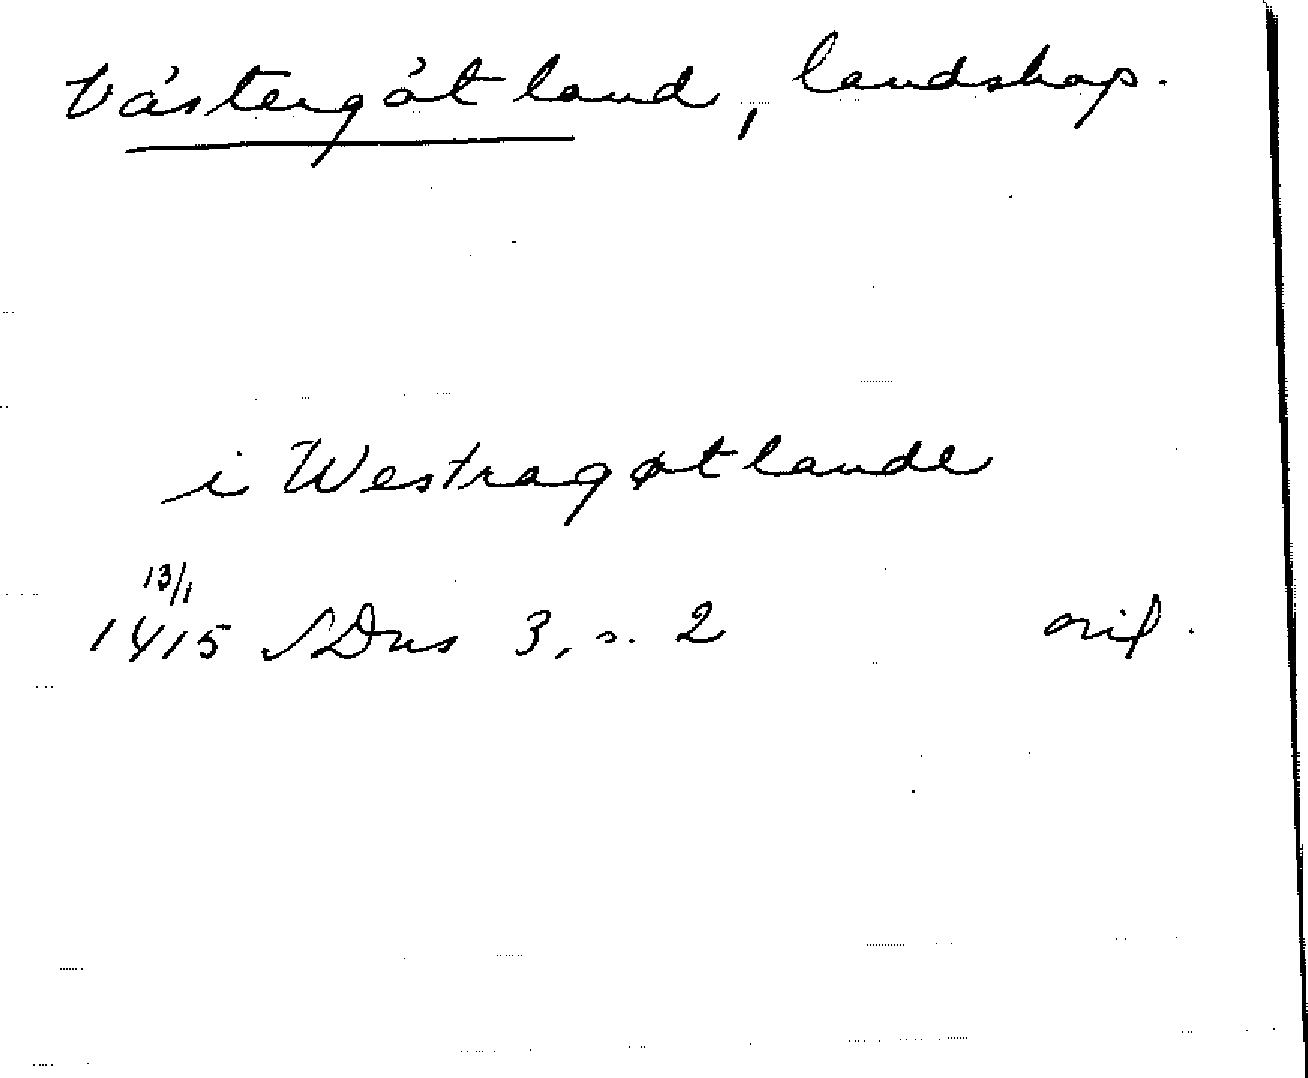 Västergötland, landskap.
i Westragøtlande
13/1
1415 SDns 3, s. 2 orig.